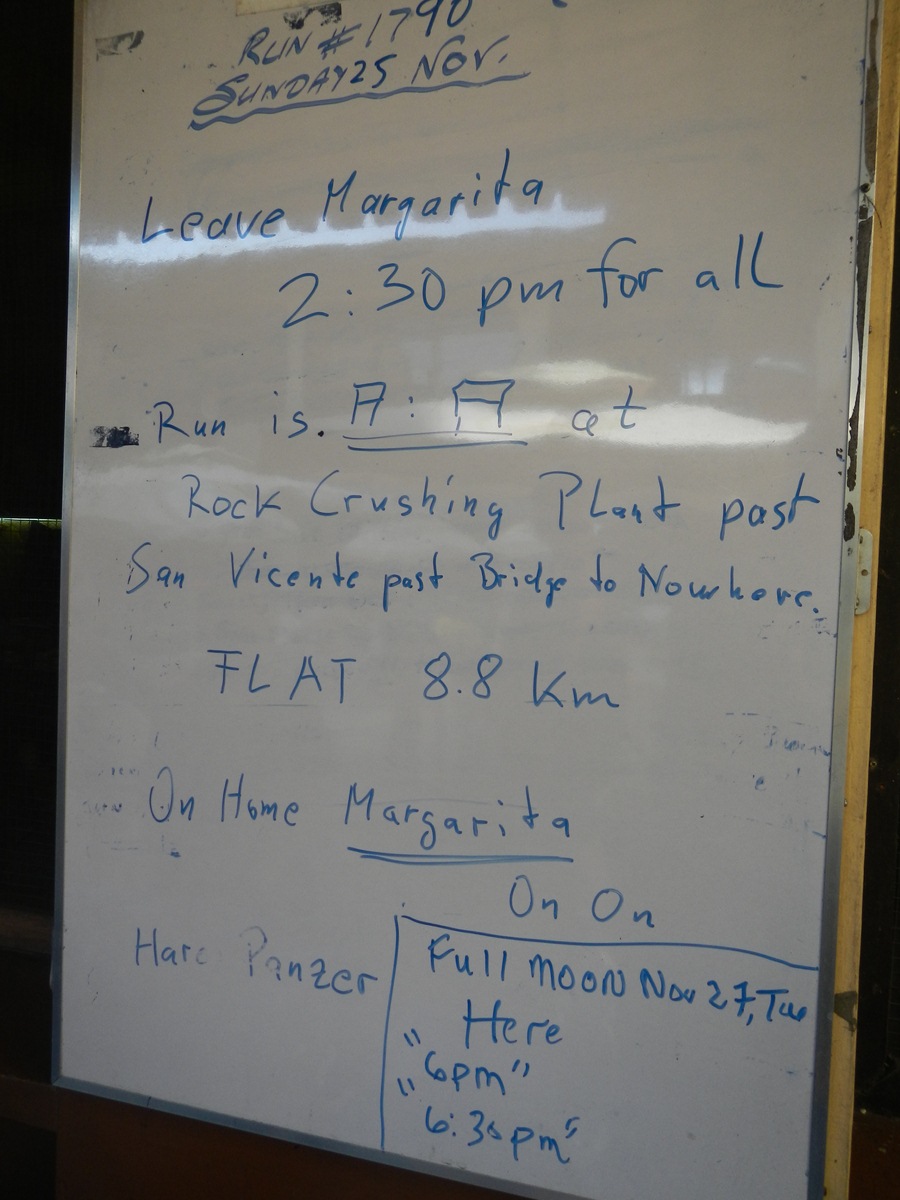 RUN #1790
SUNDAY 25 NOV.
Leave Margarita
2:30 pm for all
Run is. A : A at
Rock Crushing Plant past
San Vicente past Bridge to Nowhere.
FLAT 8.8 Km
On Home Margarita
On On
Hare Panzer
Full MOON Nov 27, Tue
Here
"6pm"
"6:30pm"